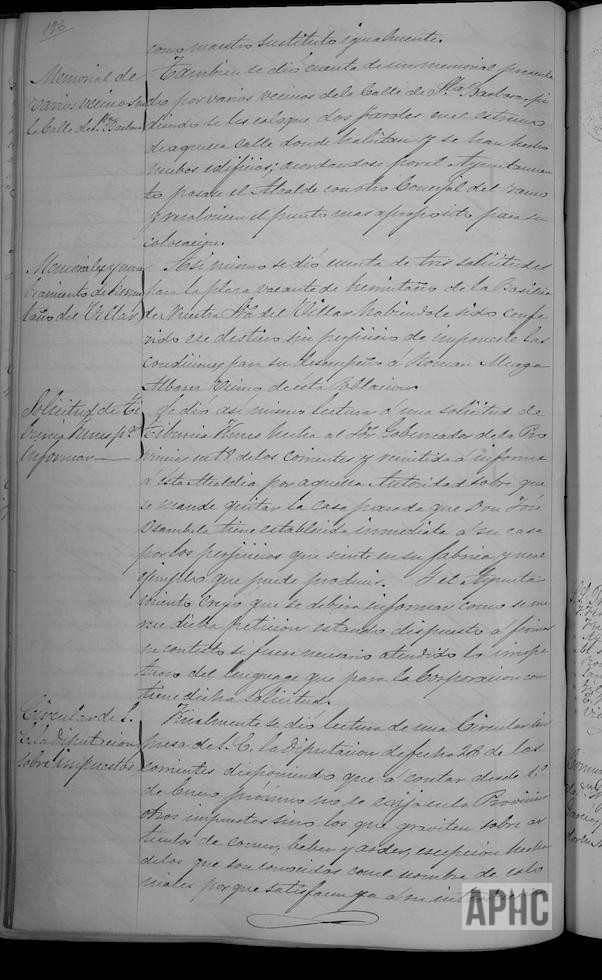 196
como maestro sustituto igualmente.
Memorial de
varios vecinos en
la Calle de Sta Barbara
Tambien se dió cuenta de un memorial presenta
do por varios vecinos de la Calle de Sta Barbara pi
diendo se les coloque dos faroles en el estremo
de aquella Calle donde habitan y se han hecho
nuebos edificios; acordandose por el Ayuntamien
to pasase el Alcalde con otro Concejal del ramo
y resolviesen el punto mas aproposito para su
colocacion.
Memoriales y nom
bramiento de Hermi
taño del Villar
Asi mismo se dió cuenta de tres solicitudes
para la plaza vacante de hermitaño de la Basilica
de Nuestra Sra del Villar habiendole sido confe
rido ese destino sin perjuicio de imponerle las
condiciones para su desempeño á Roman Murga
Albarez Vecino de esta Poblacion.
Solicitud de Ti
burcia
informar
Se dió asi mismo lectura á una solicitud de
Tiburcia hecha al Sor Gobernador de la Pro
vincia en 18 de los corrientes y remitida á informe
á esta Alcaldia por aquella Autoridad sobre que
se mande quitar la casa parada que Don José
Osambela tiene establecida inmediata á su casa
por los perjuicios que siente en su fabrica y mal
ejemplo que puede producir. Y el Ayunta
miento creyó que se debiera informar como se me
rece dicha peticion estando dispuesto á firmar
su contesto si fuere necesario atendido lo
del lenguage que para la Corporacion con
tiene dicha solicitud.
Circular de S.
E. la Diputacion
sobre impuestos
Finalmente se dió lectura de una Circular im
presa de S. E. la Diputacion de fecha 28 de los
corrientes disponiendo que á contar desde 1º
de Enero próximo no se exija en la Provincia
otros impuestos sino los que graviten sobre ar
ticulos de comer, beber y arder, escepcion hecha
de los que son conocidos con el nombre de colo
niales por que satisfacen ya á su introduccion
APHC